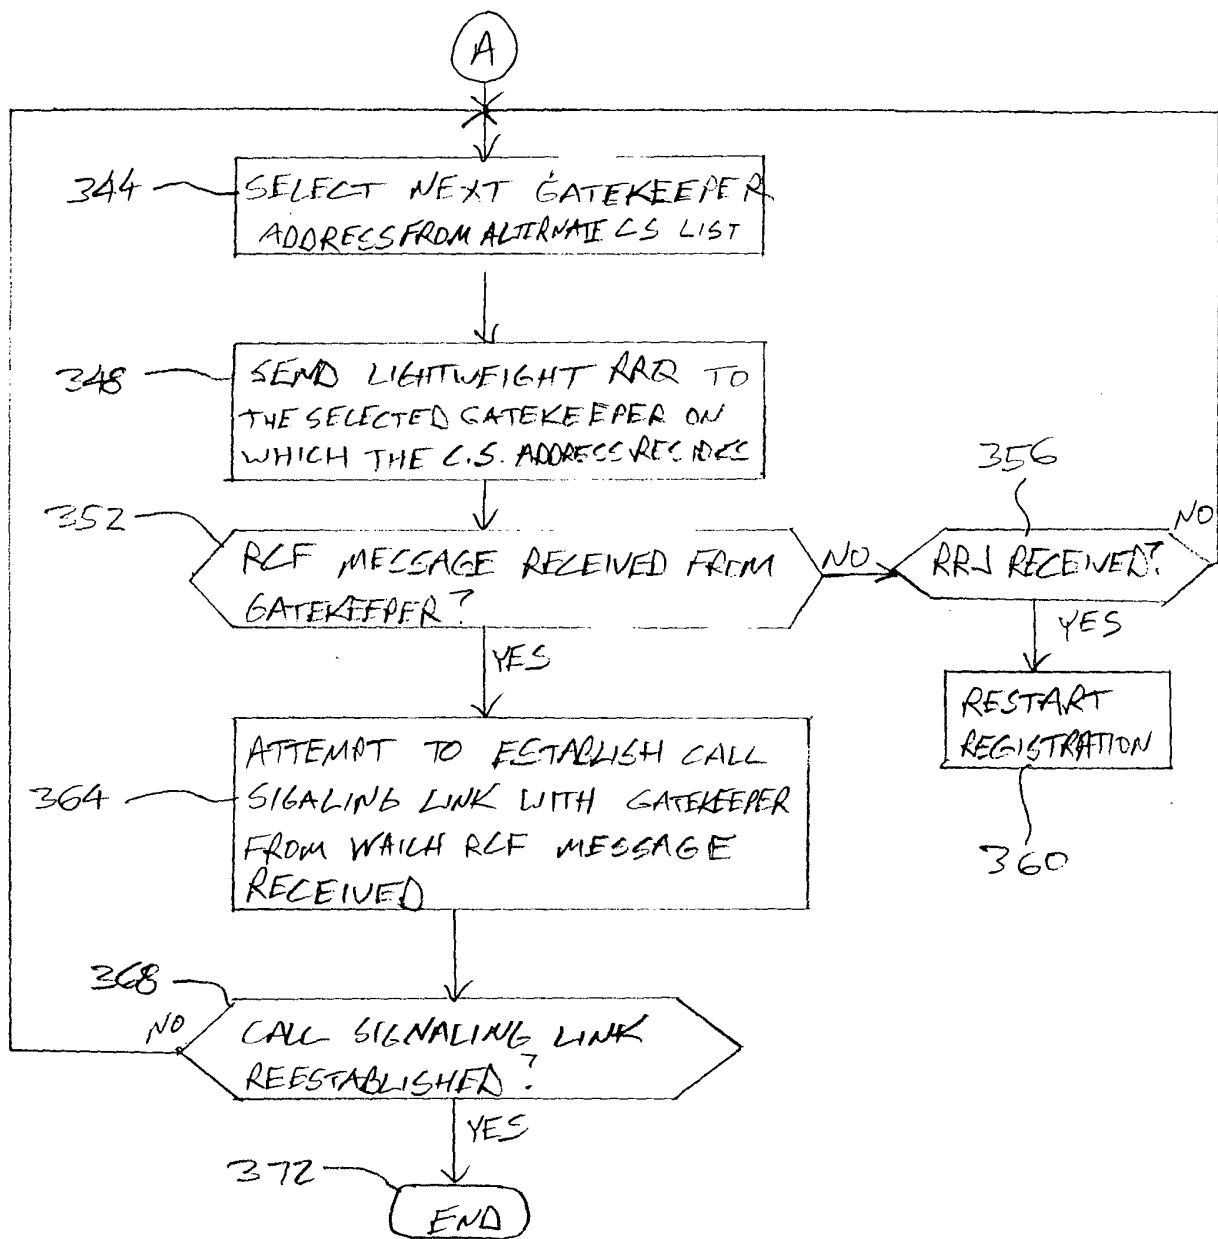 A
344
SELECT NEXT GATEKEEPER
ADDRESS FROM ALTERNATE CS LIST
348
SEND LIGHTWEIGHT RRQ TO
THE SELECTED GATEKEEPER ON
WHICH THE C.S. ADDRESS RESIDES
352
RCF MESSAGE RECEIVED FROM
GATEKEEPER?
NO
356
RRJ RECEIVED?
NO
YES
YES
RESTART
REGISTRATION
360
364
ATTEMPT TO ESTABLISH CALL
SIGALING LINK WITH GATEKEEPER
FROM WHICH RCF MESSAGE
RECEIVED
368
NO
CALL SIGNALING LINK
REESTABLISHED?
YES
372
END